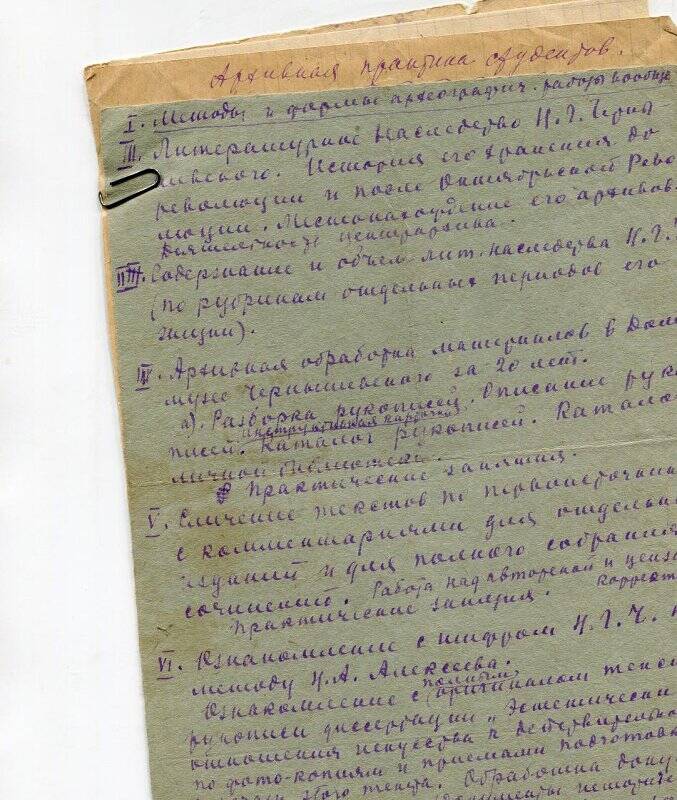 Архивная практика студентов.
I. Методы и формы археографич. работы вообще
III. Литературное наследство Н.Г. Черны
шевского. История его хранения до
революции и после Октябрьской Рево
люции. Местонахождение его архивов.
Деятельность Центрархива.
III. Содержание и объем лит. наследства Н.Г.
(по рубрикам отдельных периодов его
жизни).
IV. Архивная обработка материалов в Доме
музее Чернышевского за 20 лет.
а). Разборка рукописей. Описание руко
инструктивная карточка
писей. Каталог рукописей. Катало
личной библиотеки.
Практические занятия.
V. Сличение текстов по первоисточни
с комментариями для отдельн
изданий и для полного собрания
сочинений. Работа над авторской и ценз
Практические занятия. коррект
VI. Ознакомление с шифром Н.Г.Ч.
методу Н.А. Алексеева.
полным
Ознакомление с оригиналом текс
рукописи диссертации "Эстетически
отношения искусства к действительно
по фото-копиям и приемами подготовк
этого текста. Обработка доку